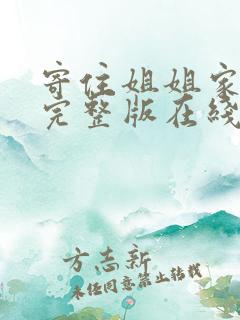 寄住姐姐家
完整版在线
方志新
未经同意禁止转载